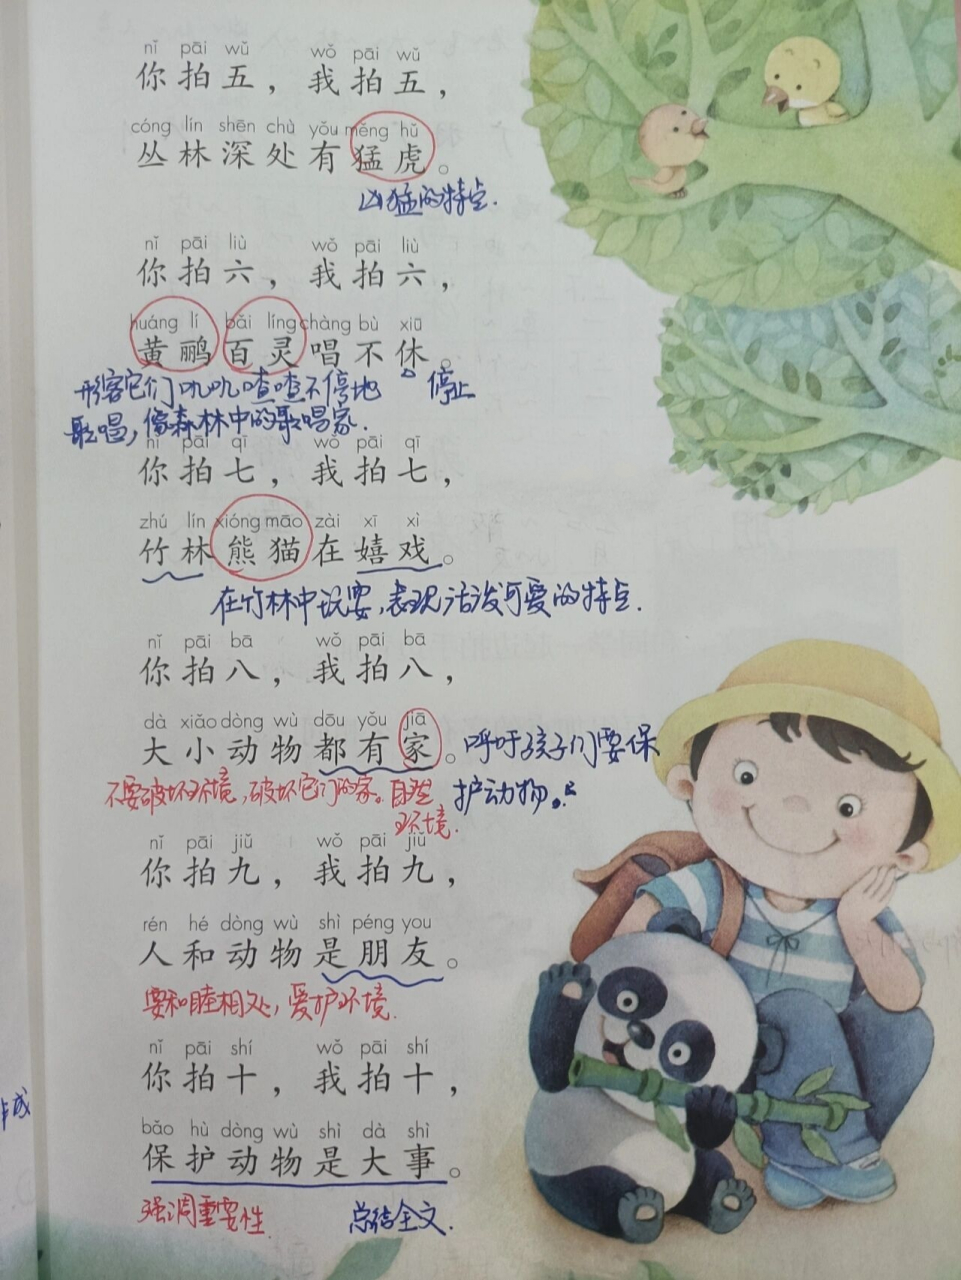 nǐ pāi wǔ wǒ pāi wǔ
你拍五，我拍五，
cóng lín shēn chù yǒu měng hǔ
丛林深处有猛虎。
凶猛的特点.
nǐ pāi liù wǒ pāi liù
你拍六，我拍六，
huáng lí bǎi líng chàng bù xiū
黄鹂百灵唱不休。
形容它们叽叽喳喳不停地 停止
歌唱，像森林中的歌唱家.
nǐ pāi qī wǒ pāi qī
你拍七，我拍七，
zhú lín xióng māo zài xī xì
竹林熊猫在嬉戏。
在竹林中玩耍，表现活泼可爱的特点.
nǐ pāi bā wǒ pāi bā
你拍八，我拍八，
dà xiǎo dòng wù dōu yǒu jiā
大小动物都有家。呼吁孩子们要保
不要破坏环境，破坏它们的家。自然 护动物。
环境.
nǐ pāi jiǔ wǒ pāi jiǔ
你拍九，我拍九，
rén hé dòng wù shì péng you
人和动物是朋友。
要和睦相处，爱护环境.
nǐ pāi shí wǒ pāi shí
你拍十，我拍十，
bǎo hù dòng wù shì dà shì
保护动物是大事。
强调重要性. 总结全文.